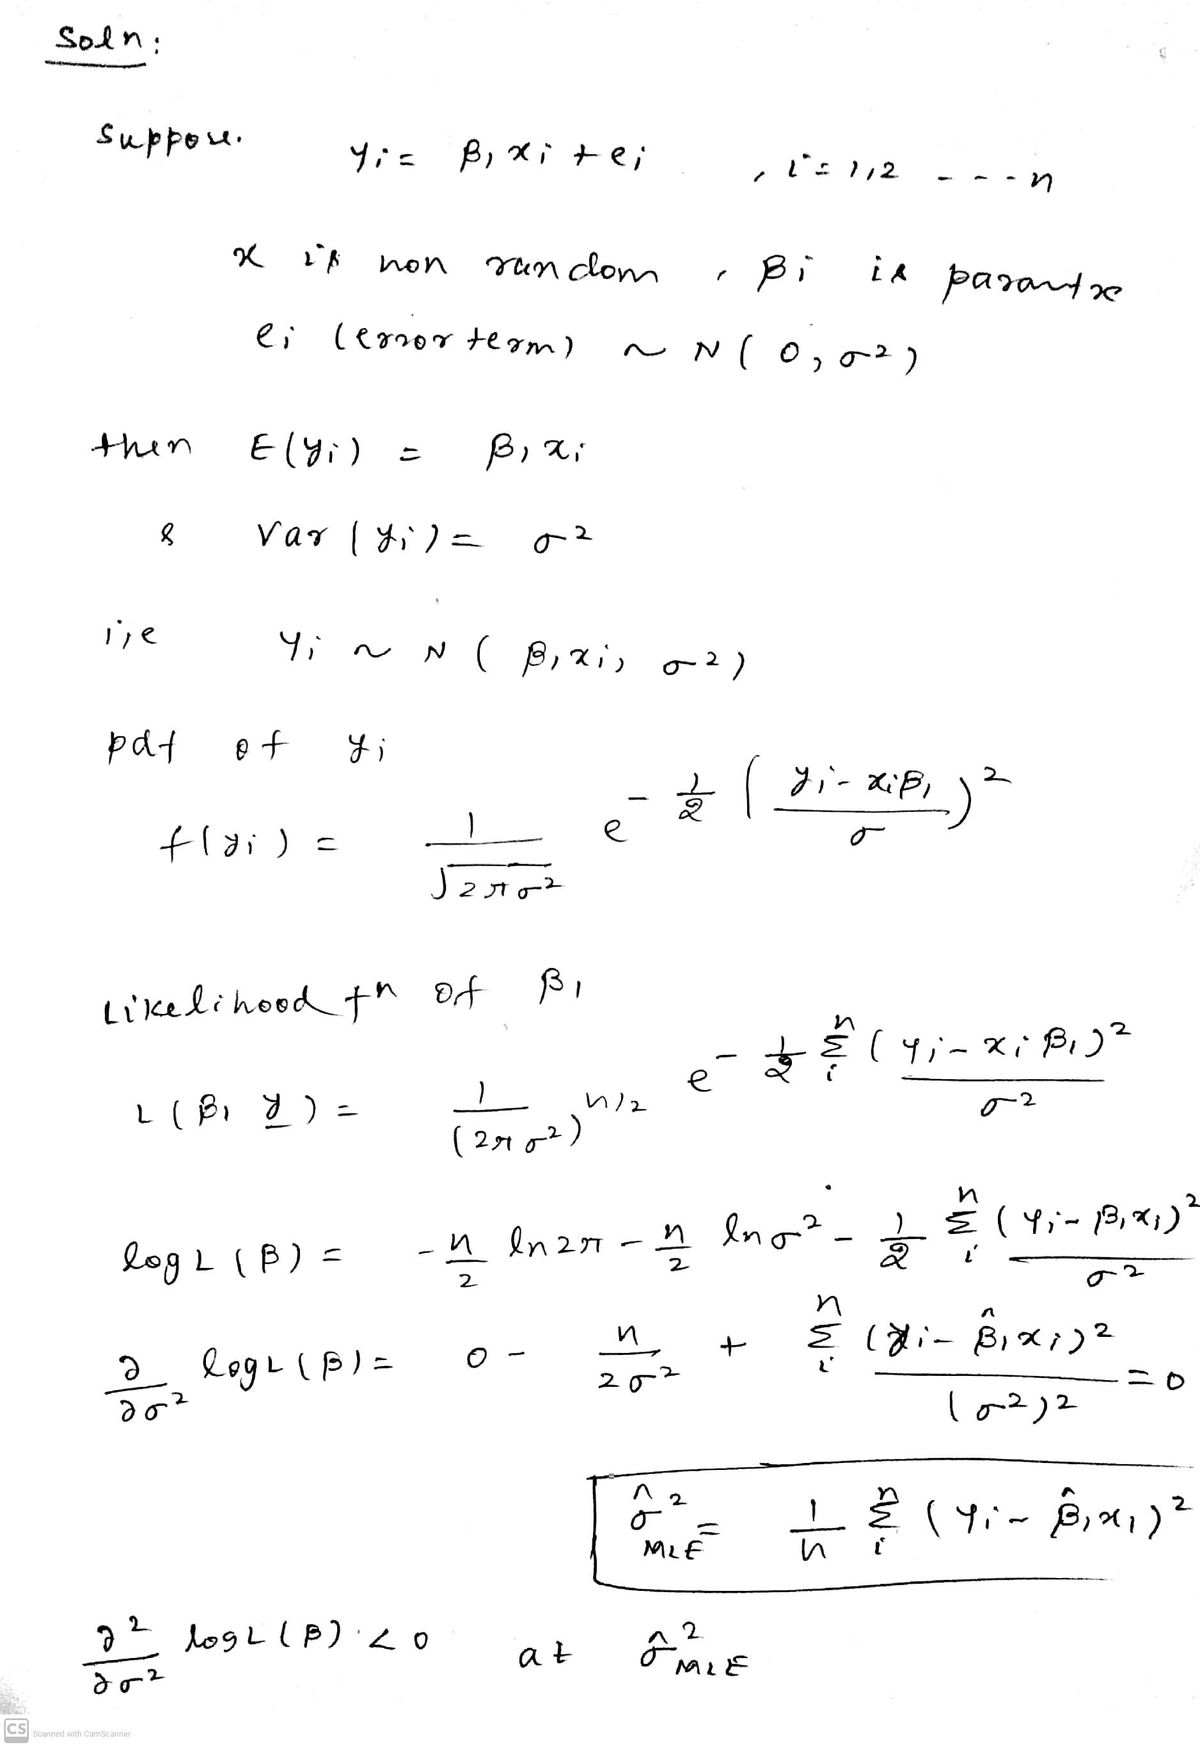 Soln:
Suppose. yi = β1 xi + ei , i = 1,2 ---- n
x is non random , βi is
ei (error term) ~ N ( 0, σ²)
then E(yi) = β1 xi
& Var (yi) = σ²
i,e yi ~ N ( β1xi, σ²)
pdf of yi
f(yi) = 1/√2πσ² e^{-1/2 ( (yi - xiβ1)/σ )²}
Likelihood fn of β1
L ( β1 y ) = 1/(2πσ²)^{n/2} e^{-1/2 Σ_i^n (yi - xi β1)²/σ²}
log L (β) = -n/2 ln 2π - n/2 ln σ² - 1/2 Σ_i^n (yi - β1xi)²/σ²
∂/∂σ² log L (β) = 0 - n/2σ² + Σ_i^n (yi - β̂1xi)²/(σ²)² = 0
σ̂²MLE = 1/n Σ_i^n (yi - β̂1xi)²
∂²/∂σ² log L (β) < 0 at σ̂²MLE
CS Scanned with CamScanner